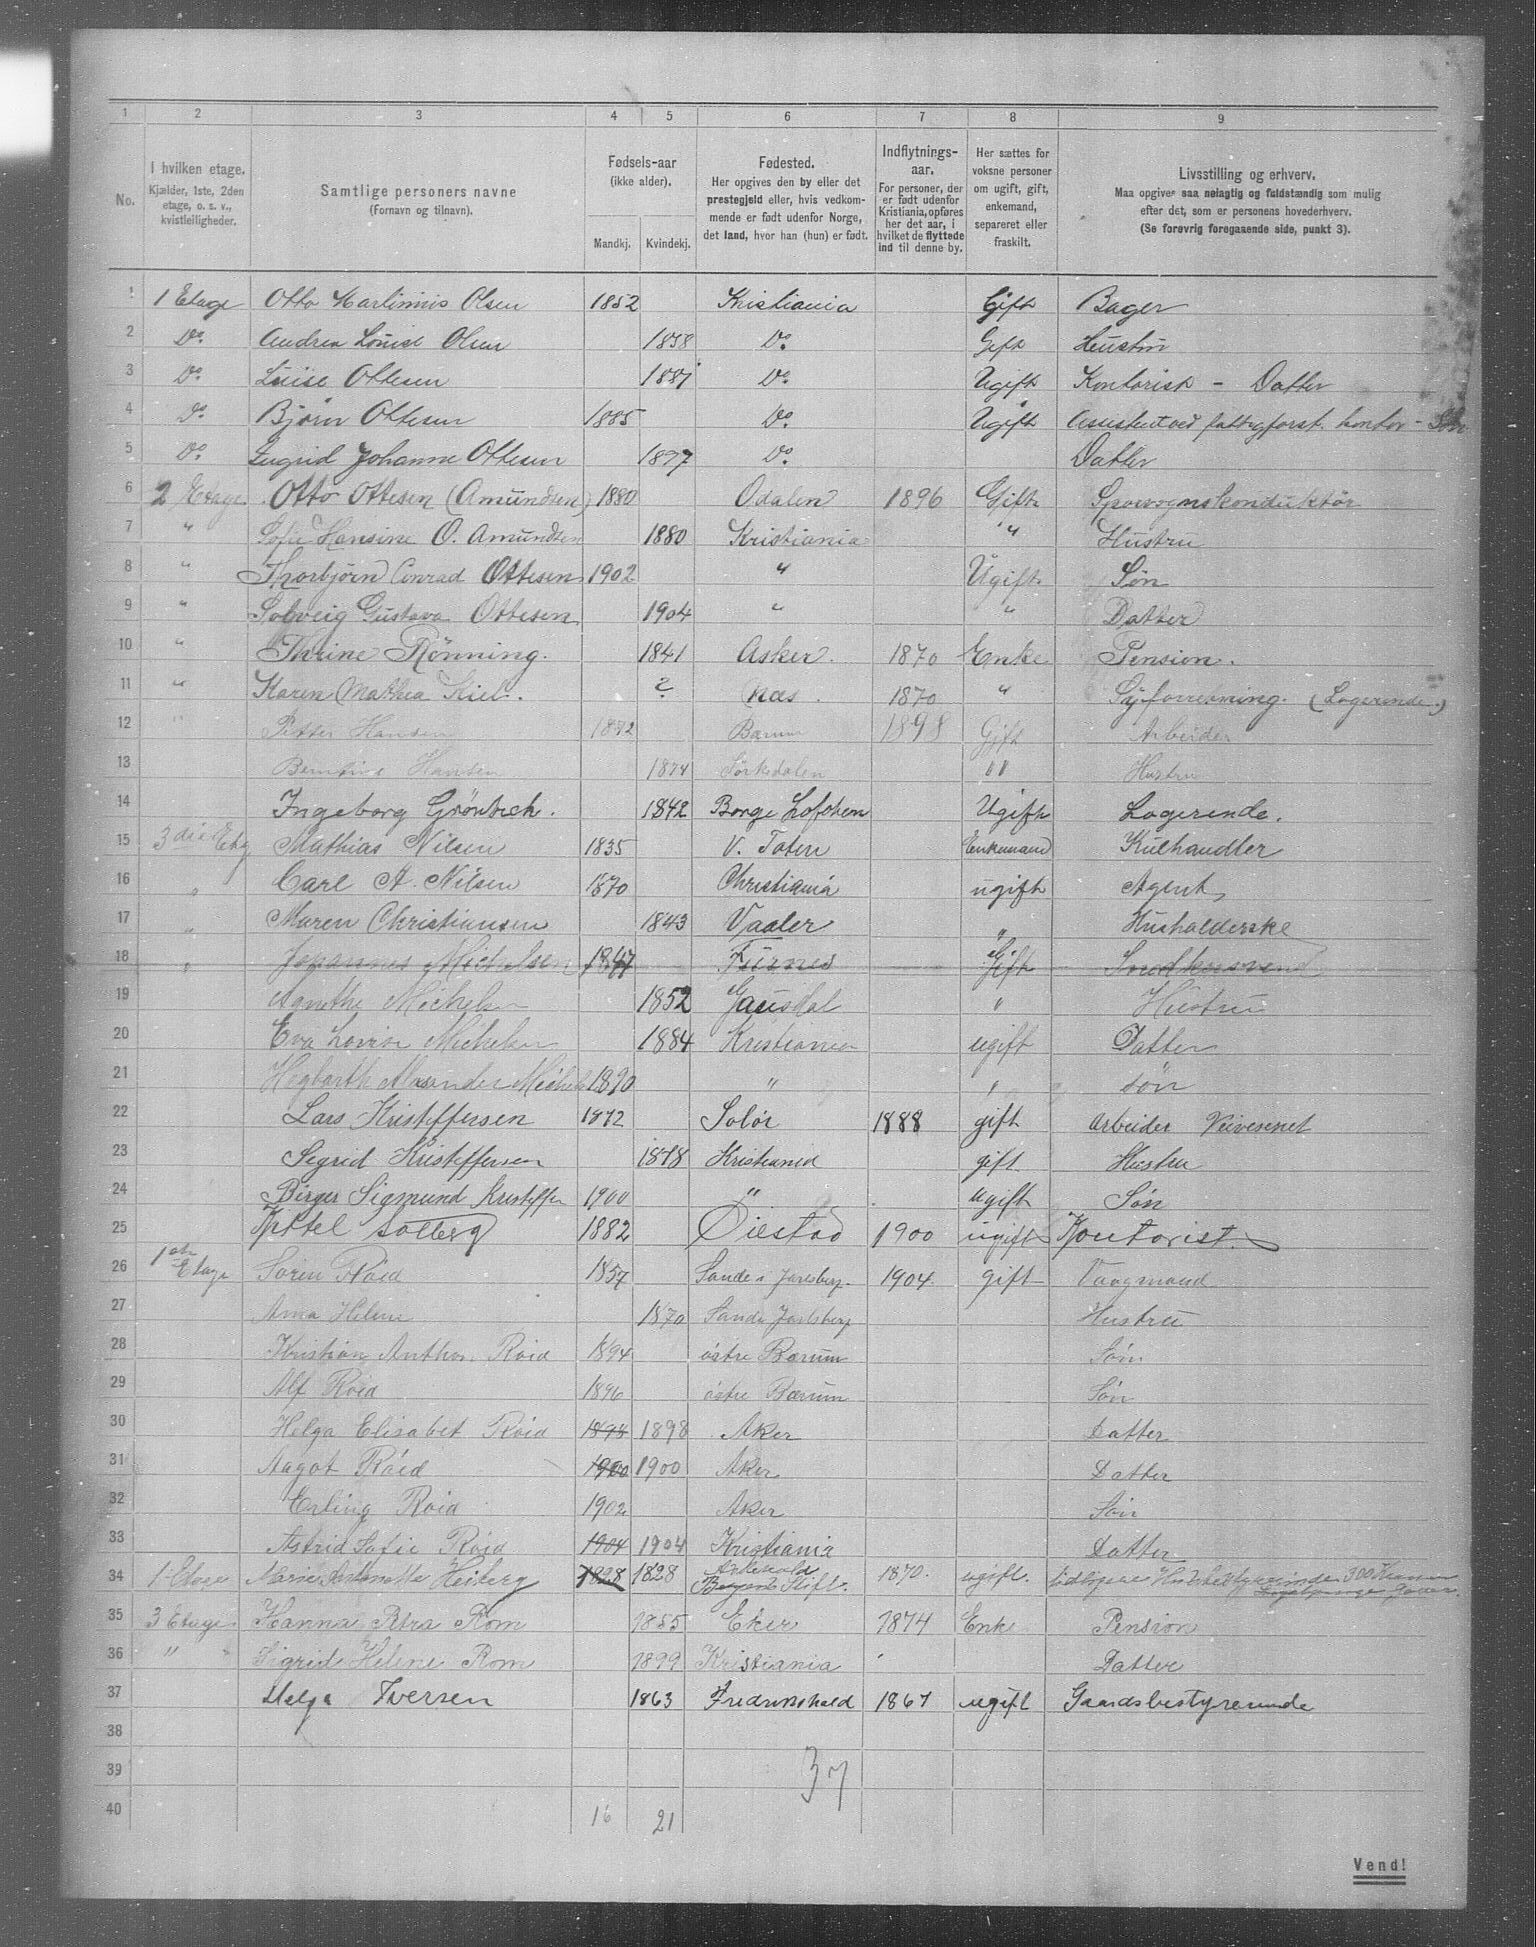 1 2 3 4 5 6 7 8 9
No. I hvilken etage. Kjælder, 1ste, 2den etage, o. s. v., kvistleiligheder. Samtlige personers navne (Fornavn og tilnavn). Fødsels-aar (ikke alder). Mandkj. Kvindekj. Fødested. Her opgives den by eller det prestegjeld eller, hvis vedkommende er født udenfor Norge, det land, hvor han (hun) er født. Indflytnings-aar. For personer, der er født udenfor Kristiania, opføres her det aar, i hvilket de flyttede ind til denne by. Her sættes for voksne personer om ugift, gift, enkemand, separeret eller fraskilt. Livsstilling og erhverv. Maa opgives saa nøiagtig og fuldstændig som mulig efter det, som er personens hovederhverv. (Se forøvrig foregaaende side, punkt 3).
1 1 Etage Otto Martinius Olsen 1852 Kristiania Gift Bager
2 Do. Andrea Louise Olsen 1858 Do. Gift Hustru
3 Do. Luise Ottesen 1881 Do. Ugift Kontorisk - Datter
4 Do. Bjørn Ottesen 1885 Do. Ugift Assistent ved fattigforst. kontor - Søn
5 Do. Ingrid Johanne Ottesen 1897 Do. Datter
6 2 Etage Otto Ottesen (Amundsen) 1880 Odalen 1896 Gift Sporvognskonduktør
7 " Sofie Hansine O. Amundsen 1880 Kristiania " Hustru
8 " Thorbjørn Conrad Ottesen 1902 " Ugift Søn
9 " Solveig Gustava Ottesen 1904 " " Datter
10 " Thrine Rønning. 1841 Asker. 1870 Enke Pension.
11 " Karen Mathea Kiel. ? Næs. 1870 " Syforretning. (Logerende.)
12 " Petter Hansen 1872 Bærum 1898 Gift Arbeider
13 Berntine Hansen 1874 Sørkedalen " Hustru
14 Ingeborg 1842 Borge Lofoten Ugift Logerende.
15 3die Etg Mathias Nilsen 1835 V. Toten Enkemand Kulhandler
16 " Carl A. Nilsen 1870 Christiania ugift Agent
17 " Maren Christiansen 1843 Vaaler " Husholderske
18 " Johannes Michelsen 1847 Furnes Gift
19 Agnethe Michelsen 1852 Gausdal " Hustru
20 Eva Lovise Michelsen 1884 Kristiania ugift Datter
21 Hagbarth Alexander Michels 1890 " " søn
22 Lars Kristeffersen 1872 Solør 1888 gift Arbeider Veivesenet
23 Sigrid Kristeffersen 1878 Kristiania gift Hustru
24 Birger Sigmund Kristeffer 1900 " Ugift Søn
25 Kittel Solberg 1882 Øiestad 1900 ugift Kontorist.
26 1ste Etage Søren Röed 1857 Sande i Jarlsberg 1904 gift Vaagmand
27 Anna Helene 1870 Sande Jarlsberg Hustru
28 Kristian Anthon Röed 1894 østre Bærum Søn
29 Alf Röed 1896 østre Bærum Søn
30 Helga Elisabet Röed 1898 1898 Aker Datter
31 Aagot Röed 1900 1900 Aker Datter
32 Erling Röed 1902 Aker Søn
33 Astrid Sofie Röed 1904 1904 Kristiania Datter
34 1 Etage Marie Antonette Heiberg 1828 1828 Askevold Bergens Stift. 1870. ugift. tidligere Husbestyrerinde 300 Kroner
35 3 Etage Hanna Petra Rom 1855 Eker 1874 Enke Pension
36 " " Sigrid Helene Rom 1899 Kristiania Datter
37 Helga Iversen 1863 Fredrikshald 1867 ugift Gaardsbestyrerinde
38
39 37
40 16 21
Vend!